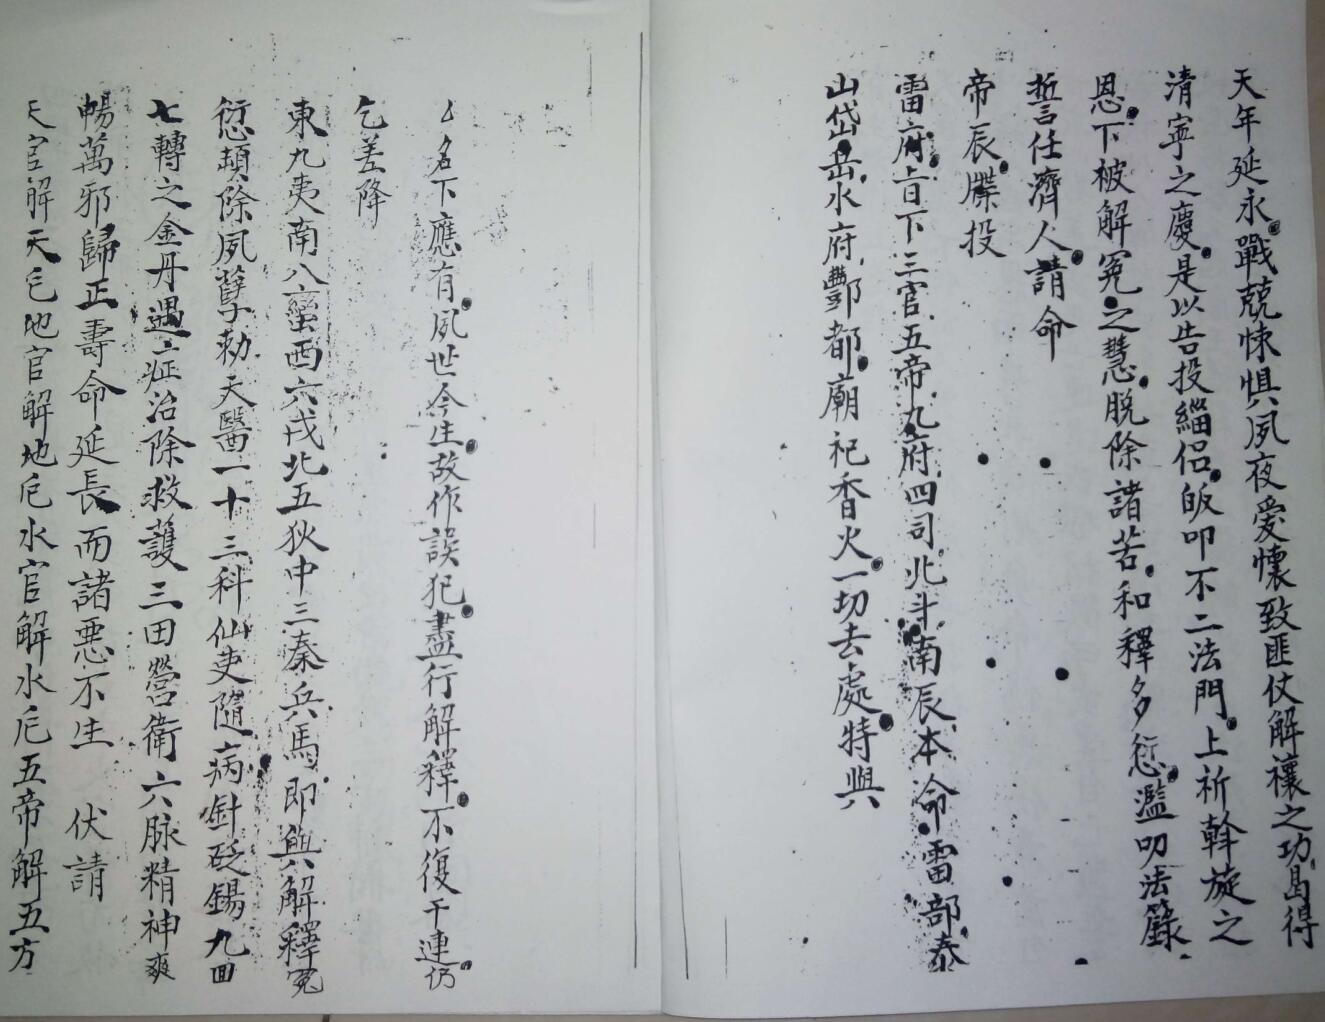 天年延永戰兢悚惧夙夜爰懷致匪仗解禳之功曷得
清寧之慶是以告投緇侣皈叩不二法門上祈斡旋之
恩下被解冤之慧脱除諸苦和釋多愆濫叨法籙
誓任濟人請命
帝辰牒投
雷府旨下三官五帝九府四司北斗南辰本命雷部泰
山岱岳水府酆都廟祀香火一切去處特與
厶名下應有夙世今生故作誤犯盡行解釋不復干連仍
乞差降
東九夷南八蠻西六戎北五狄中三秦兵馬即與解釋冤
愆頓除夙孽勅天醫一十三科仙吏隨病針砭錫九回
七轉之金丹遇症治除救護三田營衛六脉精神爽
暢萬邪歸正壽命延長而諸悪不生 伏請
天官解天厄地官解地厄水官解水厄五帝解五方